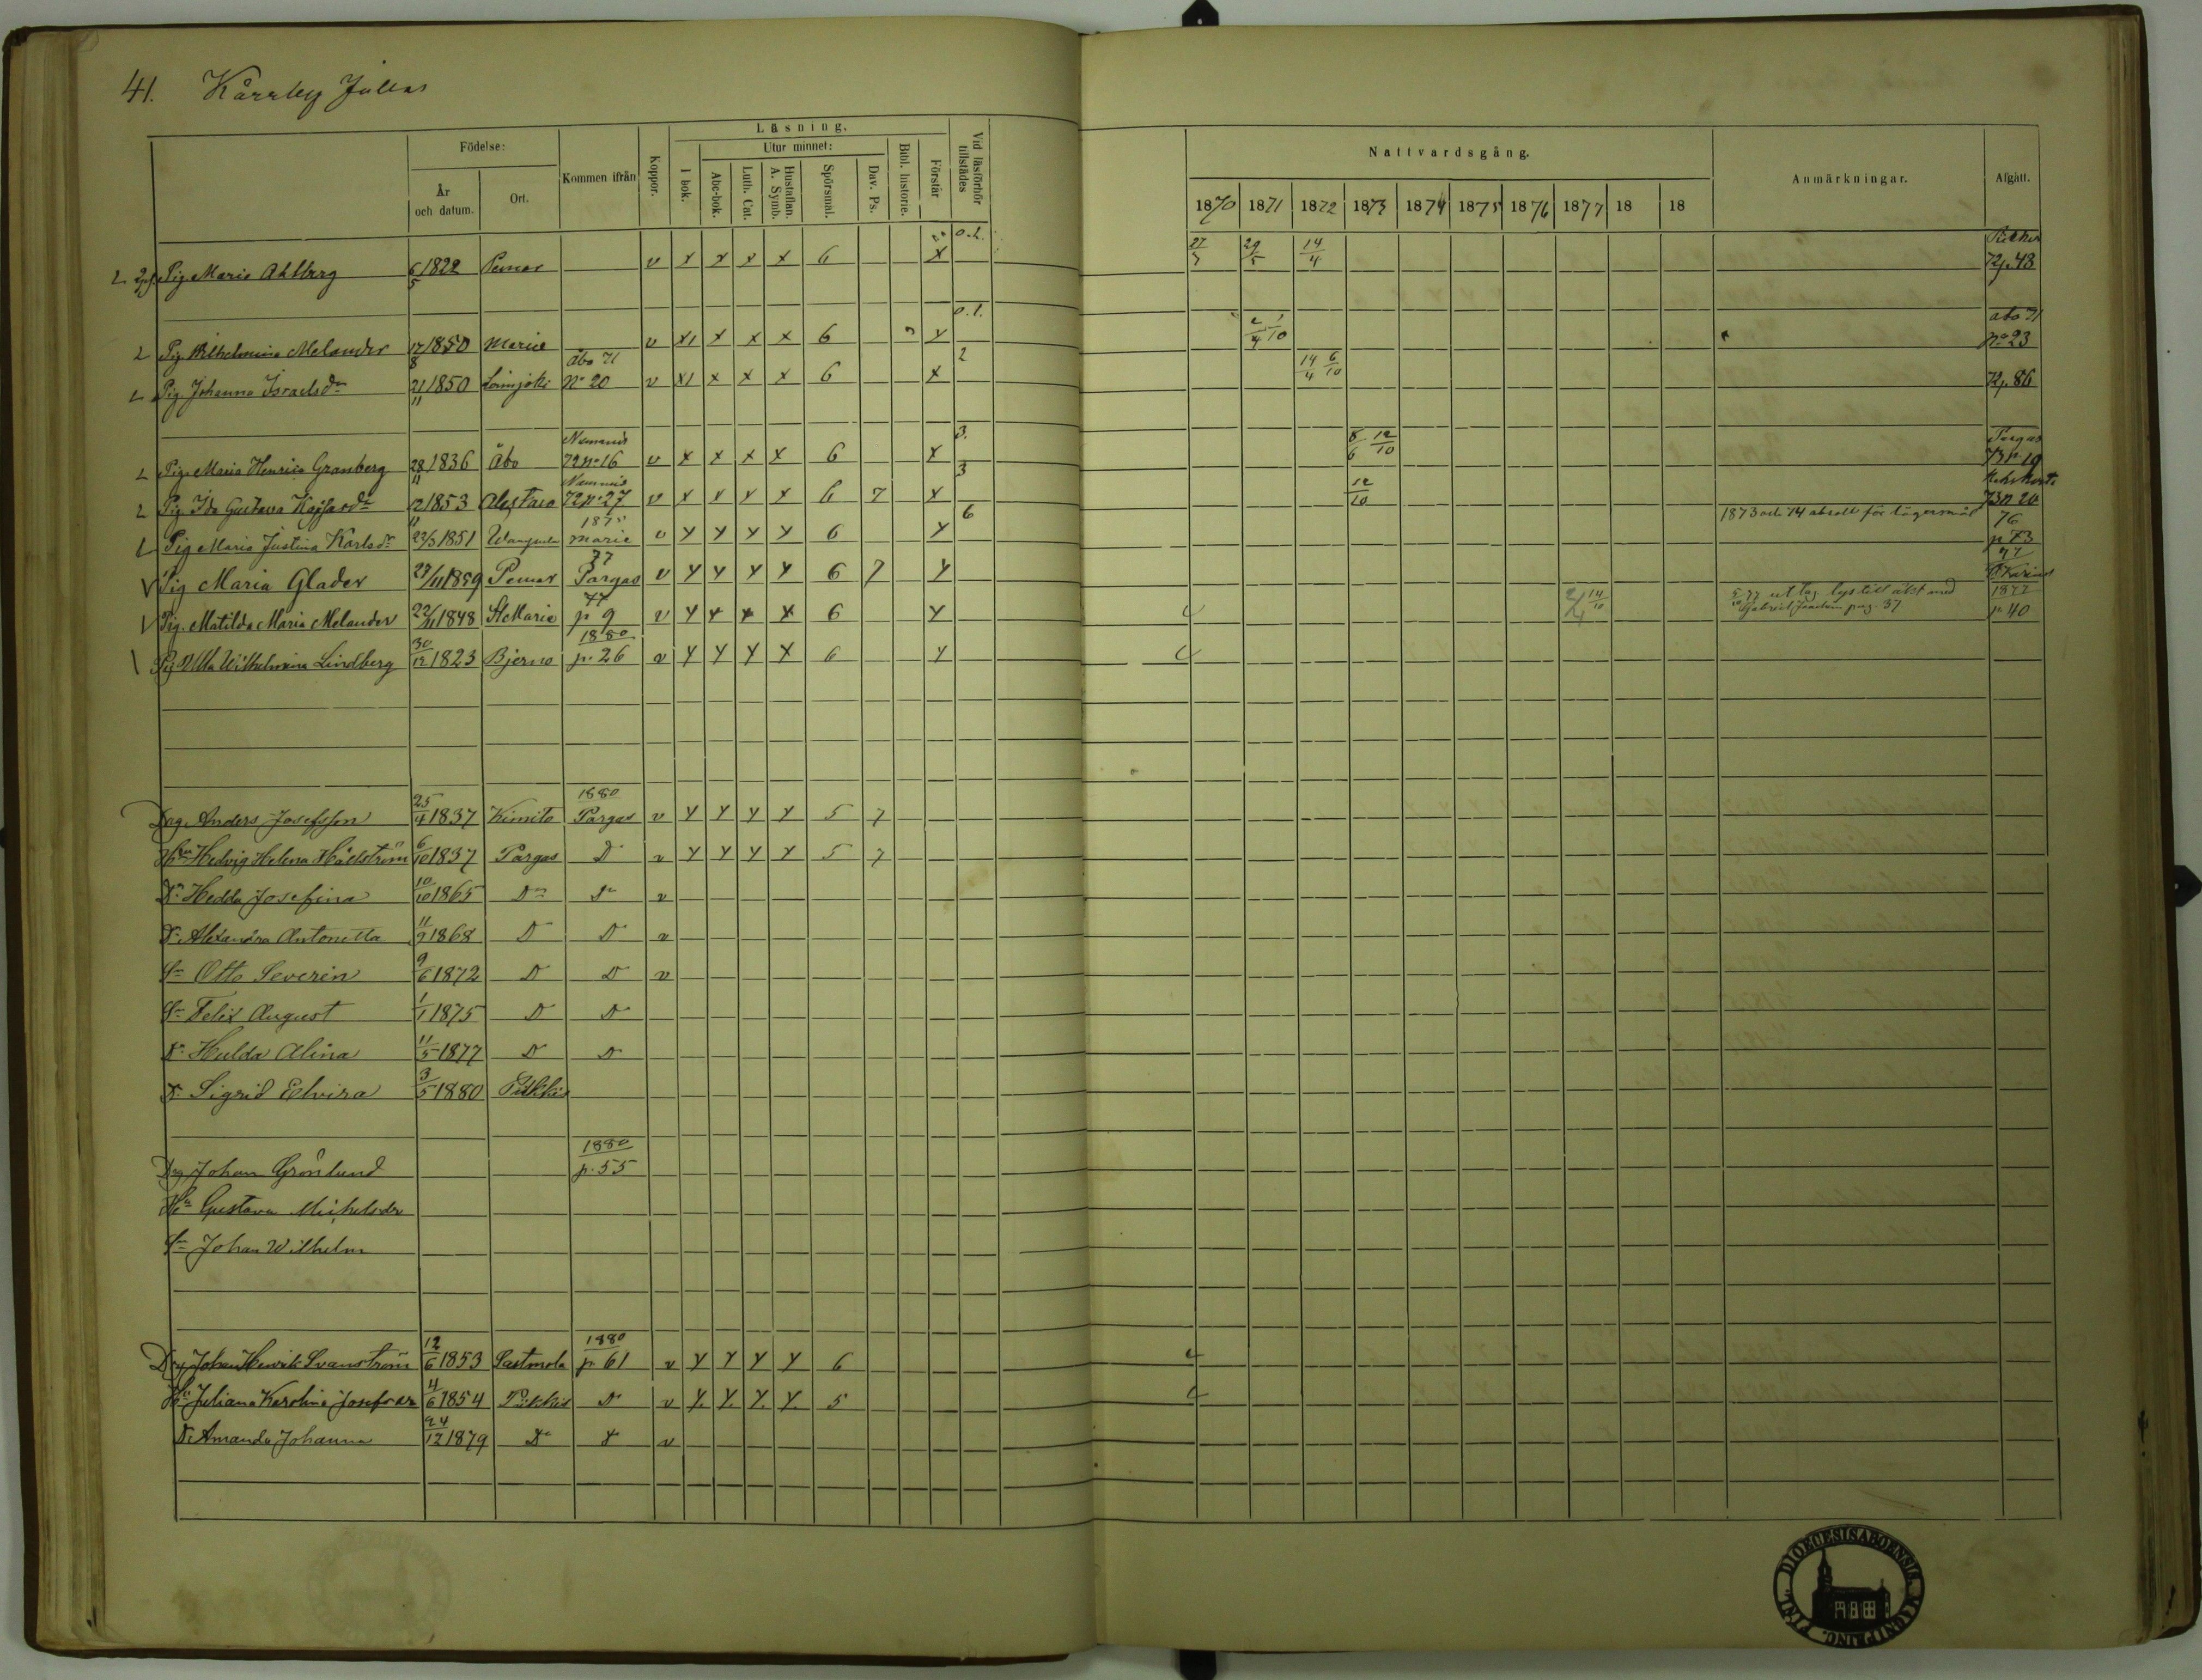 41. Kårrby Jullas
Födelse: Kommen ifrån Koppor. Läsning. Vid läsförhör tillstädes
År och datum. Ort. I bok. Utur minnet: Bibl. historie. Förstår
Abc-bok. Luth. Cat. Hustaflan. A. Symb. Spörsmal. Dav. Ps.
Nattvardsgång. Anmärkningar. Afgått.
1870 1871 1872 1873 1874 1875 1876 1877 18 18
Pig. Maria Ahlberg 6/5 1822 Pemar v x x x x 6 x 29/5 14/4 72 p. 43
Pig. Wilhelmina Melander 17/8 1850 Marie v x1 x x x 6 x 0.1. Åbo 71 No 23
Pig. Johanna Israelsdr 21/11 1850 Loimjoki Åbo 71 No 20 v x1 x x x 6 x 2 14/4 6/10 72 p. 86
Pig. Maria Henrica Granberg 28/11 1836 Åbo 72 No 16 v x x x x 6 x 3. 8/6 12/10 Pargas 73 No 19
Pig. Ida Gustava Kajsasdr 12/11 1853 Alastaro 72 No 27 v x x x x 6 7 x 3 12/10 73 n 20
Pig Maria Justina Karlsdr 23/3 1851 1875 Marie v x x x x 6 x 6 1873 och 74 absolt för lägersmål 76 p 73
Pig Maria Glader 23/11 1859 Pemar 77 Pargas v x x x x 6 7 x 77
Pig. Matilda Maria Melander 22/11 1848 St Marie 77 p 9 v x x x x 6 x 14/10 uttog lyst till äkt med Gabriel Joachim pag. 37 1877 p 40
Pig Ulla Wilhelmina Lindberg 30/12 1823 Bjerno 1880 p. 26 v x x x x 6 x
Drg. Anders Josefsson 25/4 1837 Kimito 1880 Pargas v x x x x 5 7
Hu Hedvig Helena Hällström 6/10 1837 Pargas D v x x x x 5 7
Dr Hedda Josefina 10/10 1865 Do Do v
Dr Alexandra Antonetta 11/9 1868 D D v
Sn Otto Severin 9/6 1872 D D v
Sn Felix August 1/1 1875 D D
Dr Hulda Alina 11/5 1877 D D
Dr Sigrid Elvira 3/5 1880 Pikkis
Drg Johan Grönlund 1880 p. 55
Hu Gustava Michelsdr
Sn Johan Wilhelm
Drg Johan Henrik Svanström 12/6 1853 Sastmola 1880 p 61 v x x x x 6
Hu Juliana Karolina Josefsdr 4/6 1854 Pikkis D v x x x x 5
Dr Amanda Johanna 24/12 1879 Do D v
FINL. DIOECESIS ABOENSIS